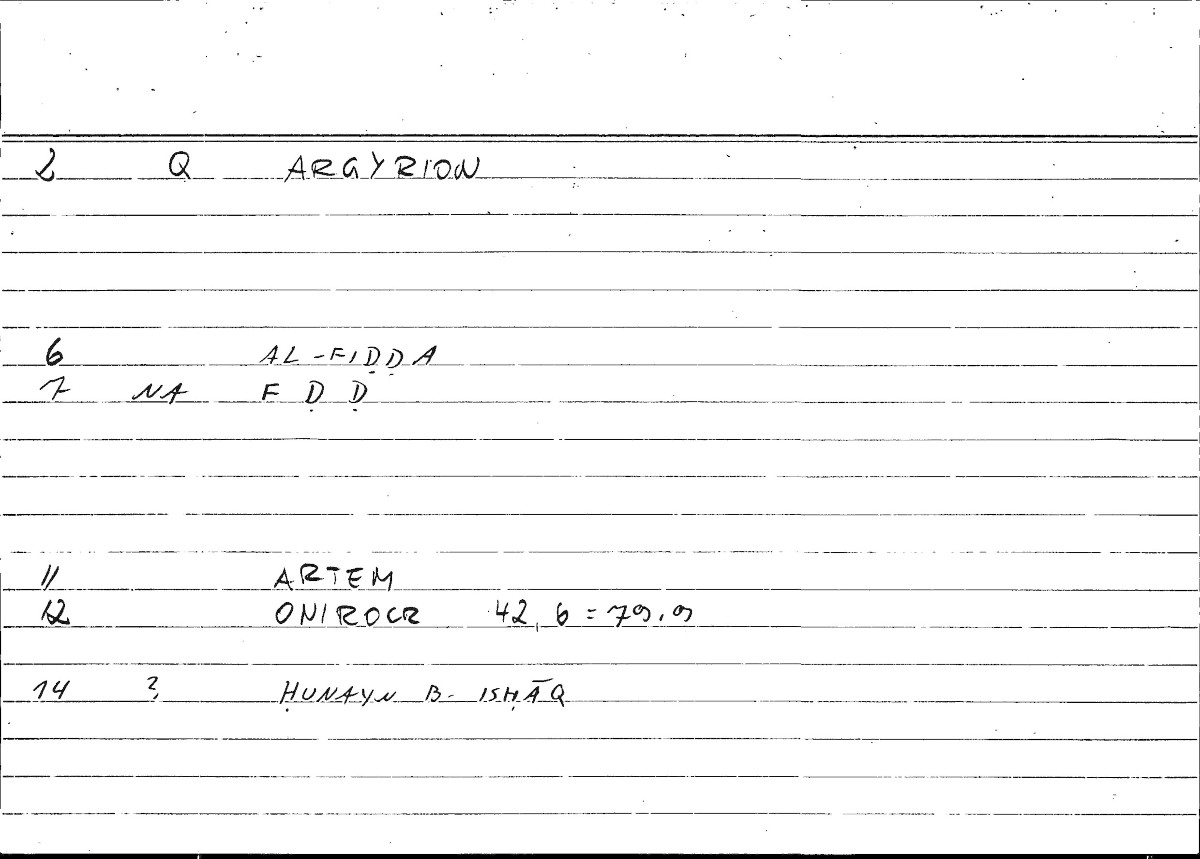 2 Q ARGYRION
6 AL-FIḌḌA
7 NA F Ḍ Ḍ
11 ARTEM
12 ONIROCR 42,6 = 79.9
14 ? ḤUNAYN B. ISḤĀQ